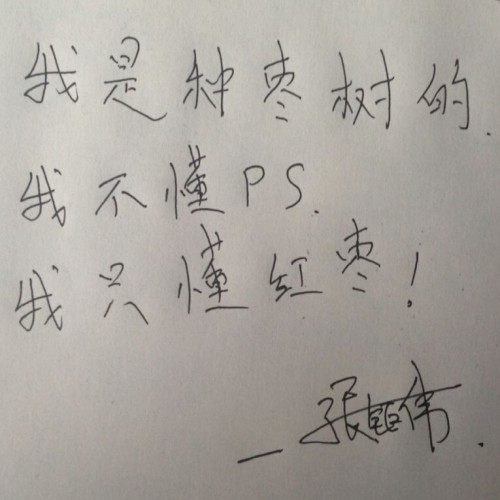 我是种枣树的.
我不懂PS.
我只懂红枣!
—张钜伟.